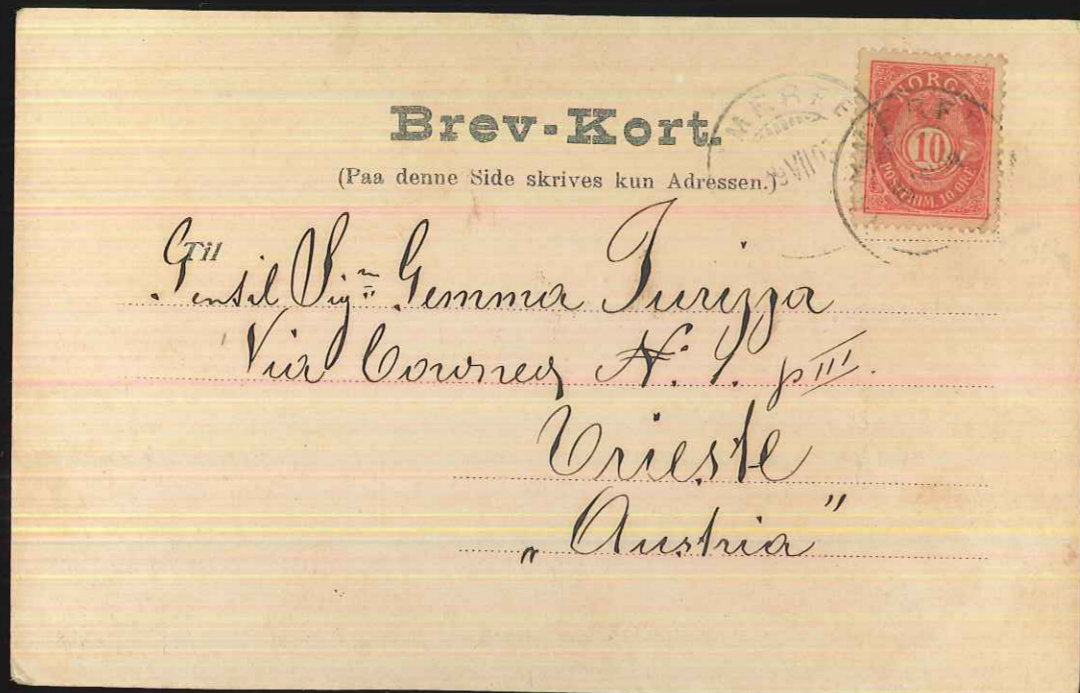 Brev-Kort.
(Paa denne Side skrives kun Adressen.)
NORGE
10
POSTFRIM. 10 ØRE
Til
Gentil Sig.na Gemma Jurizza
Via N. 1. p III.
Trieste
„Austria"